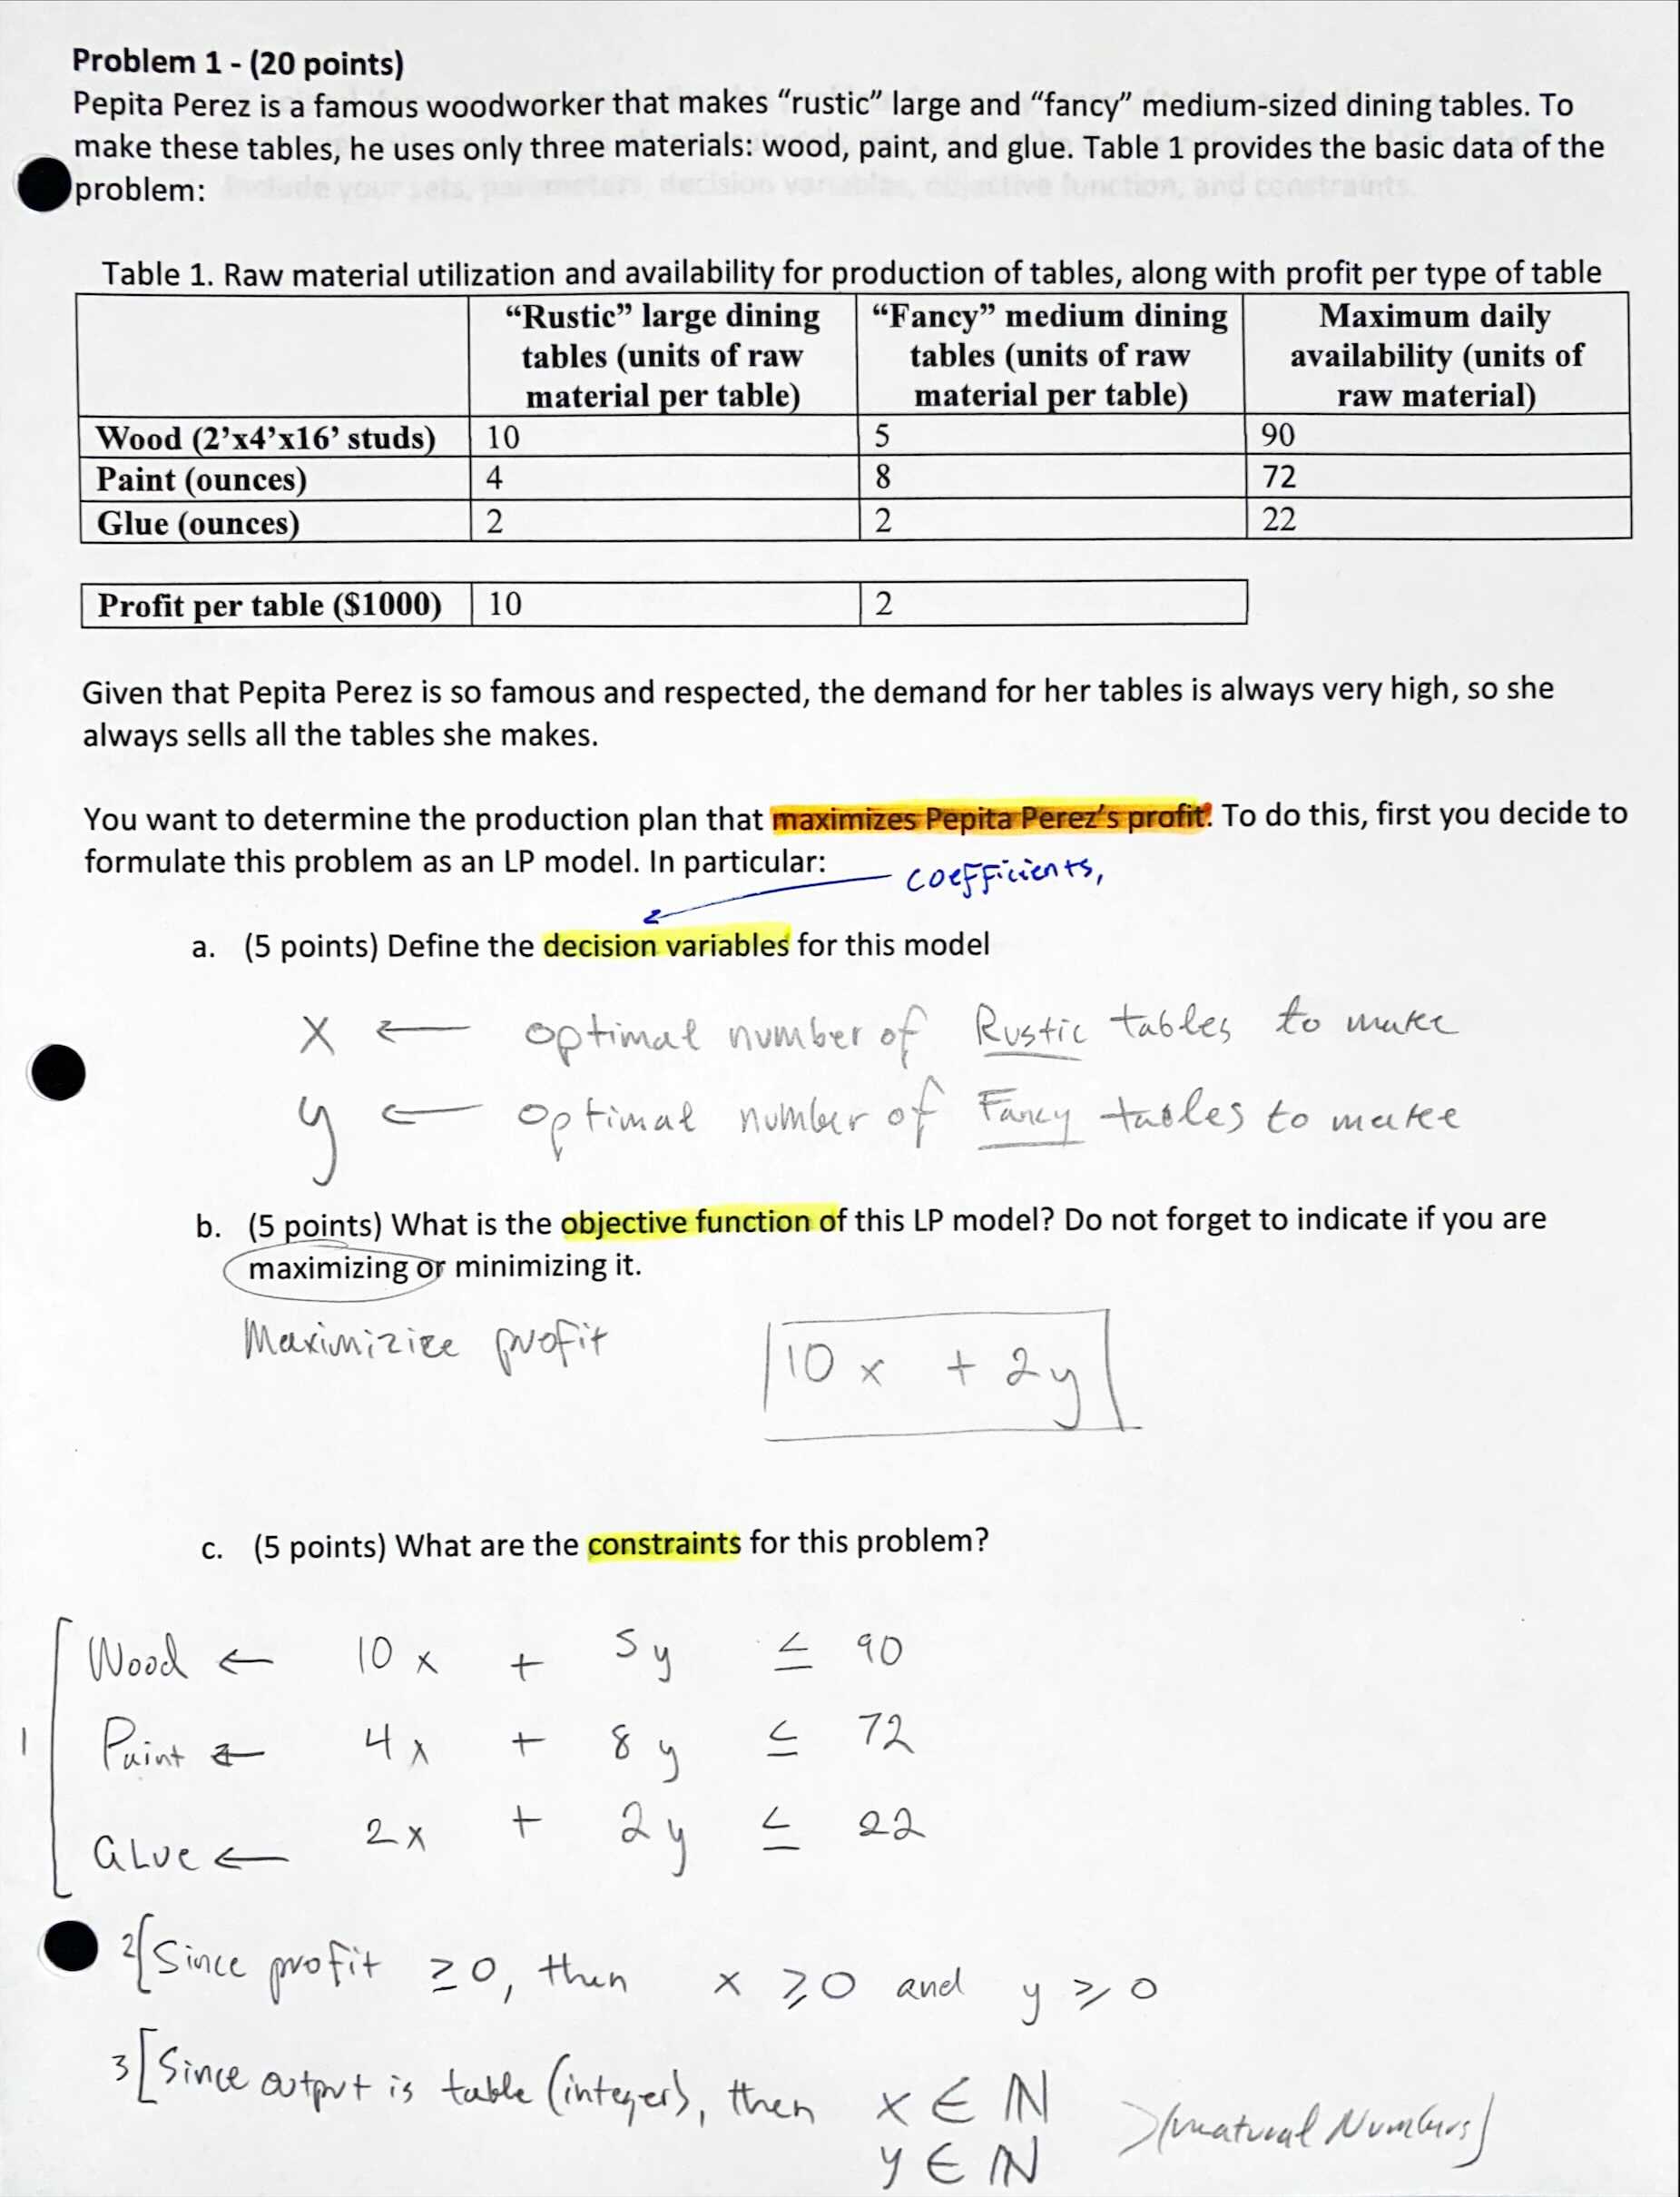 Problem 1 - (20 points)
Pepita Perez is a famous woodworker that makes “rustic” large and “fancy” medium-sized dining tables. To
make these tables, he uses only three materials: wood, paint, and glue. Table 1 provides the basic data of the
problem:
include your sets, parameters, decision variables, objective function, and constraints.
Table 1. Raw material utilization and availability for production of tables, along with profit per type of table
“Rustic” large dining tables (units of raw material per table) “Fancy” medium dining tables (units of raw material per table) Maximum daily availability (units of raw material)
Wood (2’x4’x16’ studs) 10 5 90
Paint (ounces) 4 8 72
Glue (ounces) 2 2 22
Profit per table ($1000) 10 2
Given that Pepita Perez is so famous and respected, the demand for her tables is always very high, so she
always sells all the tables she makes.
You want to determine the production plan that maximizes Pepita Perez’s profit. To do this, first you decide to
formulate this problem as an LP model. In particular:
coefficients,
a. (5 points) Define the decision variables for this model
x ← optimal number of Rustic tables to make
y ← optimal number of Fancy tables to make
b. (5 points) What is the objective function of this LP model? Do not forget to indicate if you are
maximizing or minimizing it.
Maximizize profit 10x + 2y
c. (5 points) What are the constraints for this problem?
Wood ← 10x + 5y ≤ 90
1 Paint ← 4x + 8y ≤ 72
GLue ← 2x + 2y ≤ 22
2 [Since profit ≥ 0, then x ≥ 0 and y ≥ 0
3 [Since output is table (integer), then x ∈ ℕ
y ∈ ℕ >(natural Numbers)